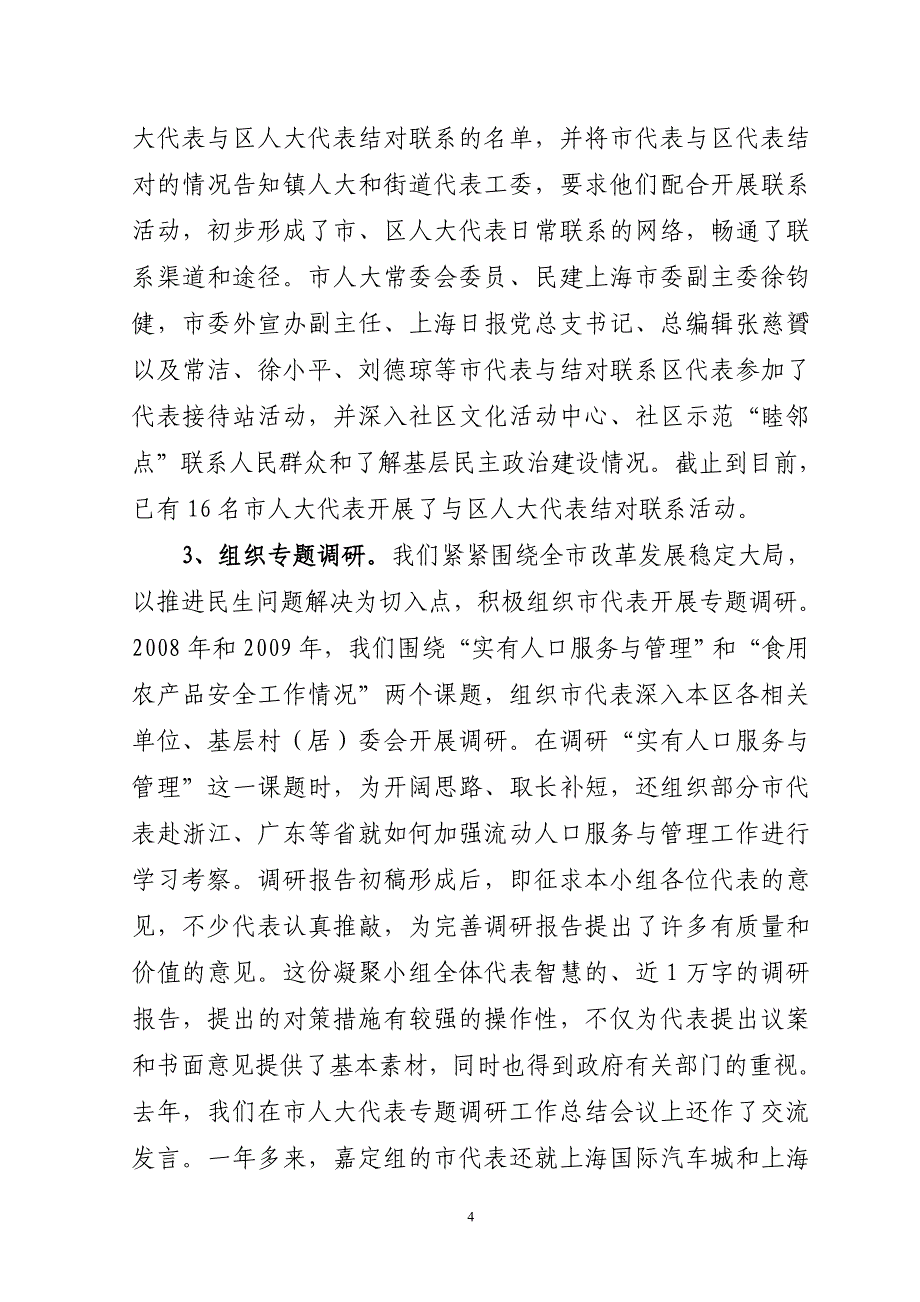 大代表与区人大代表结对联系的名单，并将市代表与区代表结
对的情况告知镇人大和街道代表工委，要求他们配合开展联系
活动，初步形成了市、区人大代表日常联系的网络，畅通了联
系渠道和途径。市人大常委会委员、民建上海市委副主委徐钧
健，市委外宣办副主任、上海日报党总支书记、总编辑张慈赟
以及常洁、徐小平、刘德琼等市代表与结对联系区代表参加了
代表接待站活动，并深入社区文化活动中心、社区示范“睦邻
点”联系人民群众和了解基层民主政治建设情况。截止到目前，
已有16名市人大代表开展了与区人大代表结对联系活动。
3、组织专题调研。我们紧紧围绕全市改革发展稳定大局，
以推进民生问题解决为切入点，积极组织市代表开展专题调研。
2008年和2009年，我们围绕“实有人口服务与管理”和“食用
农产品安全工作情况”两个课题，组织市代表深入本区各相关
单位、基层村（居）委会开展调研。在调研“实有人口服务与
管理”这一课题时，为开阔思路、取长补短，还组织部分市代
表赴浙江、广东等省就如何加强流动人口服务与管理工作进行
学习考察。调研报告初稿形成后，即征求本小组各位代表的意
见，不少代表认真推敲，为完善调研报告提出了许多有质量和
价值的意见。这份凝聚小组全体代表智慧的、近1万字的调研
报告，提出的对策措施有较强的操作性，不仅为代表提出议案
和书面意见提供了基本素材，同时也得到政府有关部门的重视。
去年，我们在市人大代表专题调研工作总结会议上还作了交流
发言。一年多来，嘉定组的市代表还就上海国际汽车城和上海
4